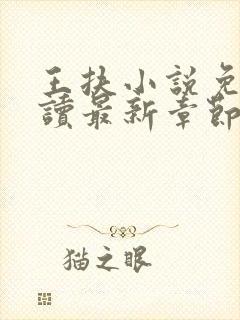 王扶小說免
讀最新章節
猫之眼